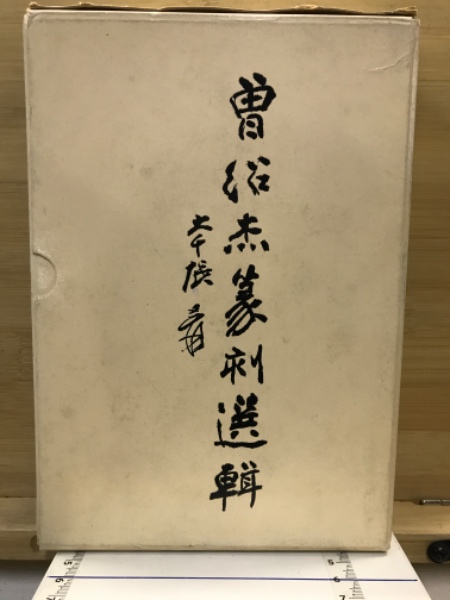 曾紹杰篆刻選輯
大千張爰
5
6
5
6
7